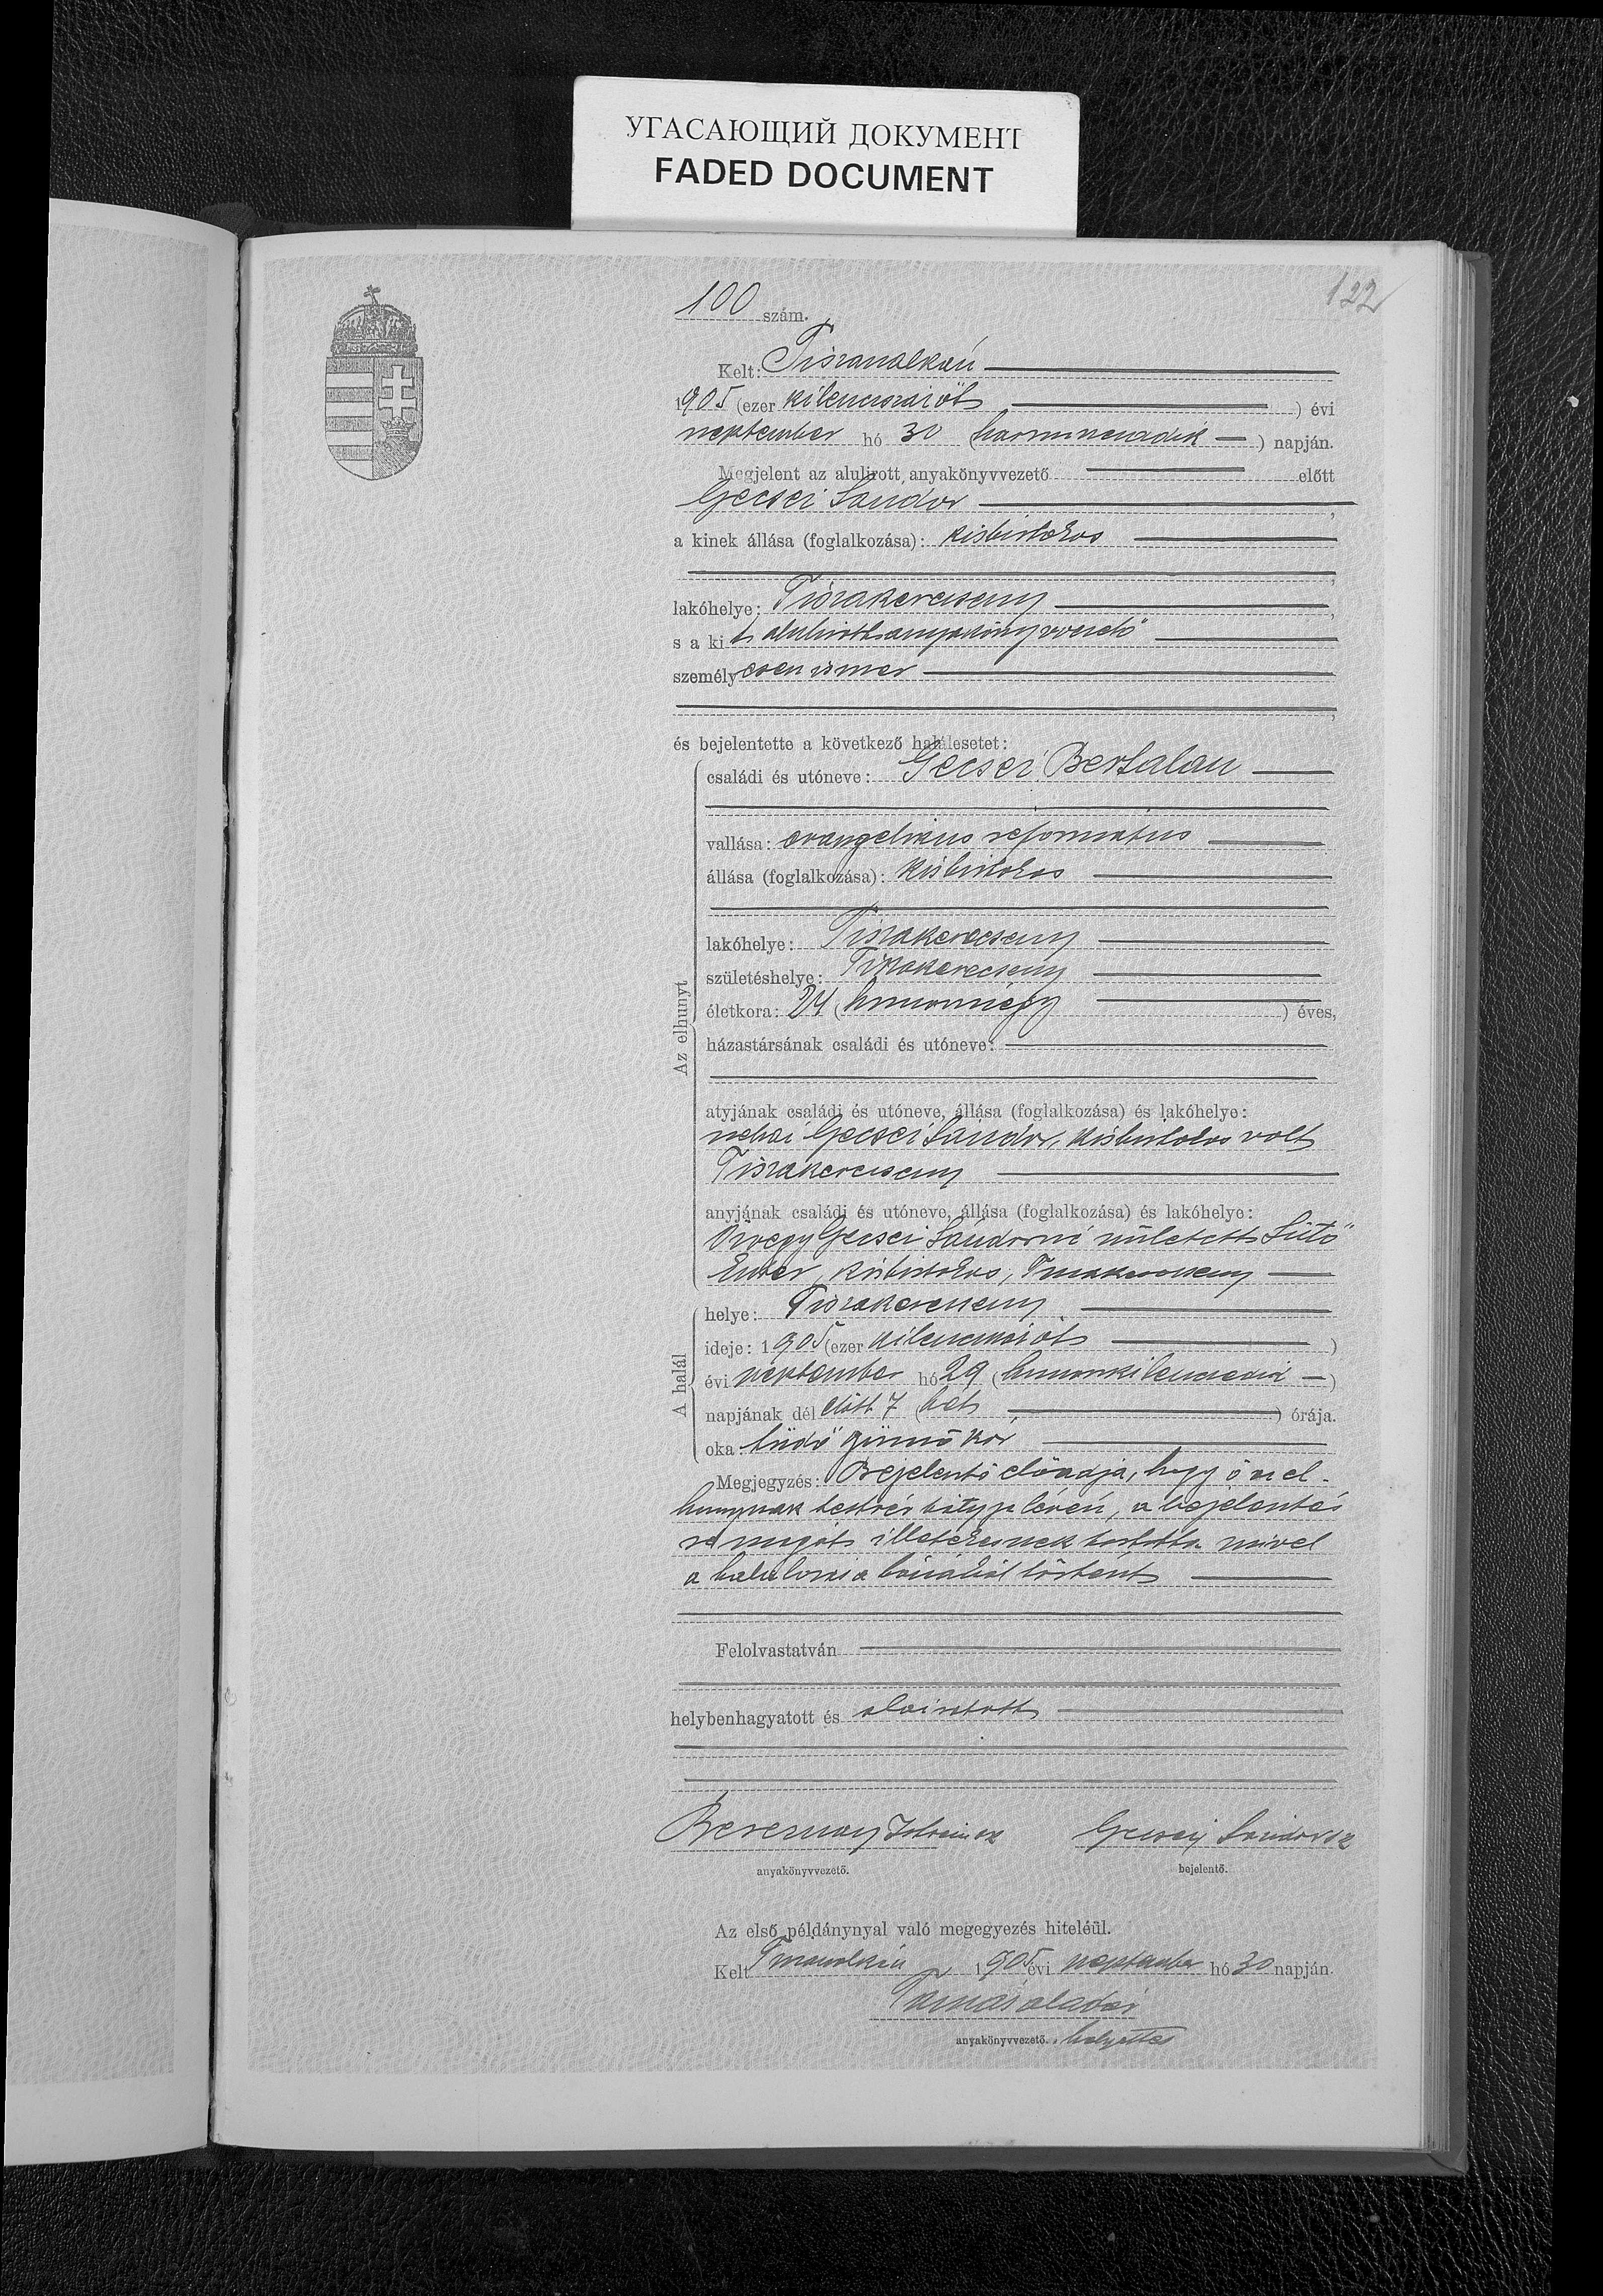 УГАСАЮЩИЙ ДОКУМЕНТ
FADED DOCUMENT
122
100 szám.
Kelt:
1905 (ezer kilencszázöt) évi
szeptember hó 30 (harmincadik) napján.
Megjelent az alulirott anyakönyvvezető előtt
Gecsei Sándor,
a kinek állása (foglalkozása): kisbirtokos
lakóhelye: Tiszakerecseny,
s a ki t alulirott anyakönyvvezető
személyesen ismer,
és bejelentette a következő halálesetet:
Az elhunyt
családi és utóneve: Gecsei Bertalan
vallása: evangelikus református
állása (foglalkozása): kisbirtokos
lakóhelye: Tiszakerecseny
születéshelye: Tiszakerecseny
életkora: 24 (huszonnégy) éves,
házastársának családi és utóneve:
atyjának családi és utóneve, állása (foglalkozása) és lakóhelye:
néhai Gecsei Sándor, kisbirtokos volt
Tiszakerecseny
anyjának családi és utóneve, állása (foglalkozása) és lakóhelye:
Özvegy Gecsei Sándorné született Sütő
Eszter, kisbirtokos, Tiszakerecseny
A halál
helye: Tiszakerecseny
ideje: 1905 (ezer kilencszázöt)
évi szeptember hó 29 (huszonkilencedik)
napjának dél előtt 7 (hét) órája.
oka: tüdő gümőkor
Megjegyzés: Bejelentő előadja, hogy ő az el-
hunytnak testvér bátyja lévén, a bejelentés
re magát illetékesnek tartotta mivel
a haláleset a házánál történt
Felolvastatván
helybenhagyatott és aláiratott
István sk
Gecsey Sándor sk
anyakönyvvezető.
bejelentő.
Az első példánynyal való megegyezés hiteléül.
Kelt 1905 évi szeptember hó 30 napján.
Tamás Aladár
anyakönyvvezető. helyettes